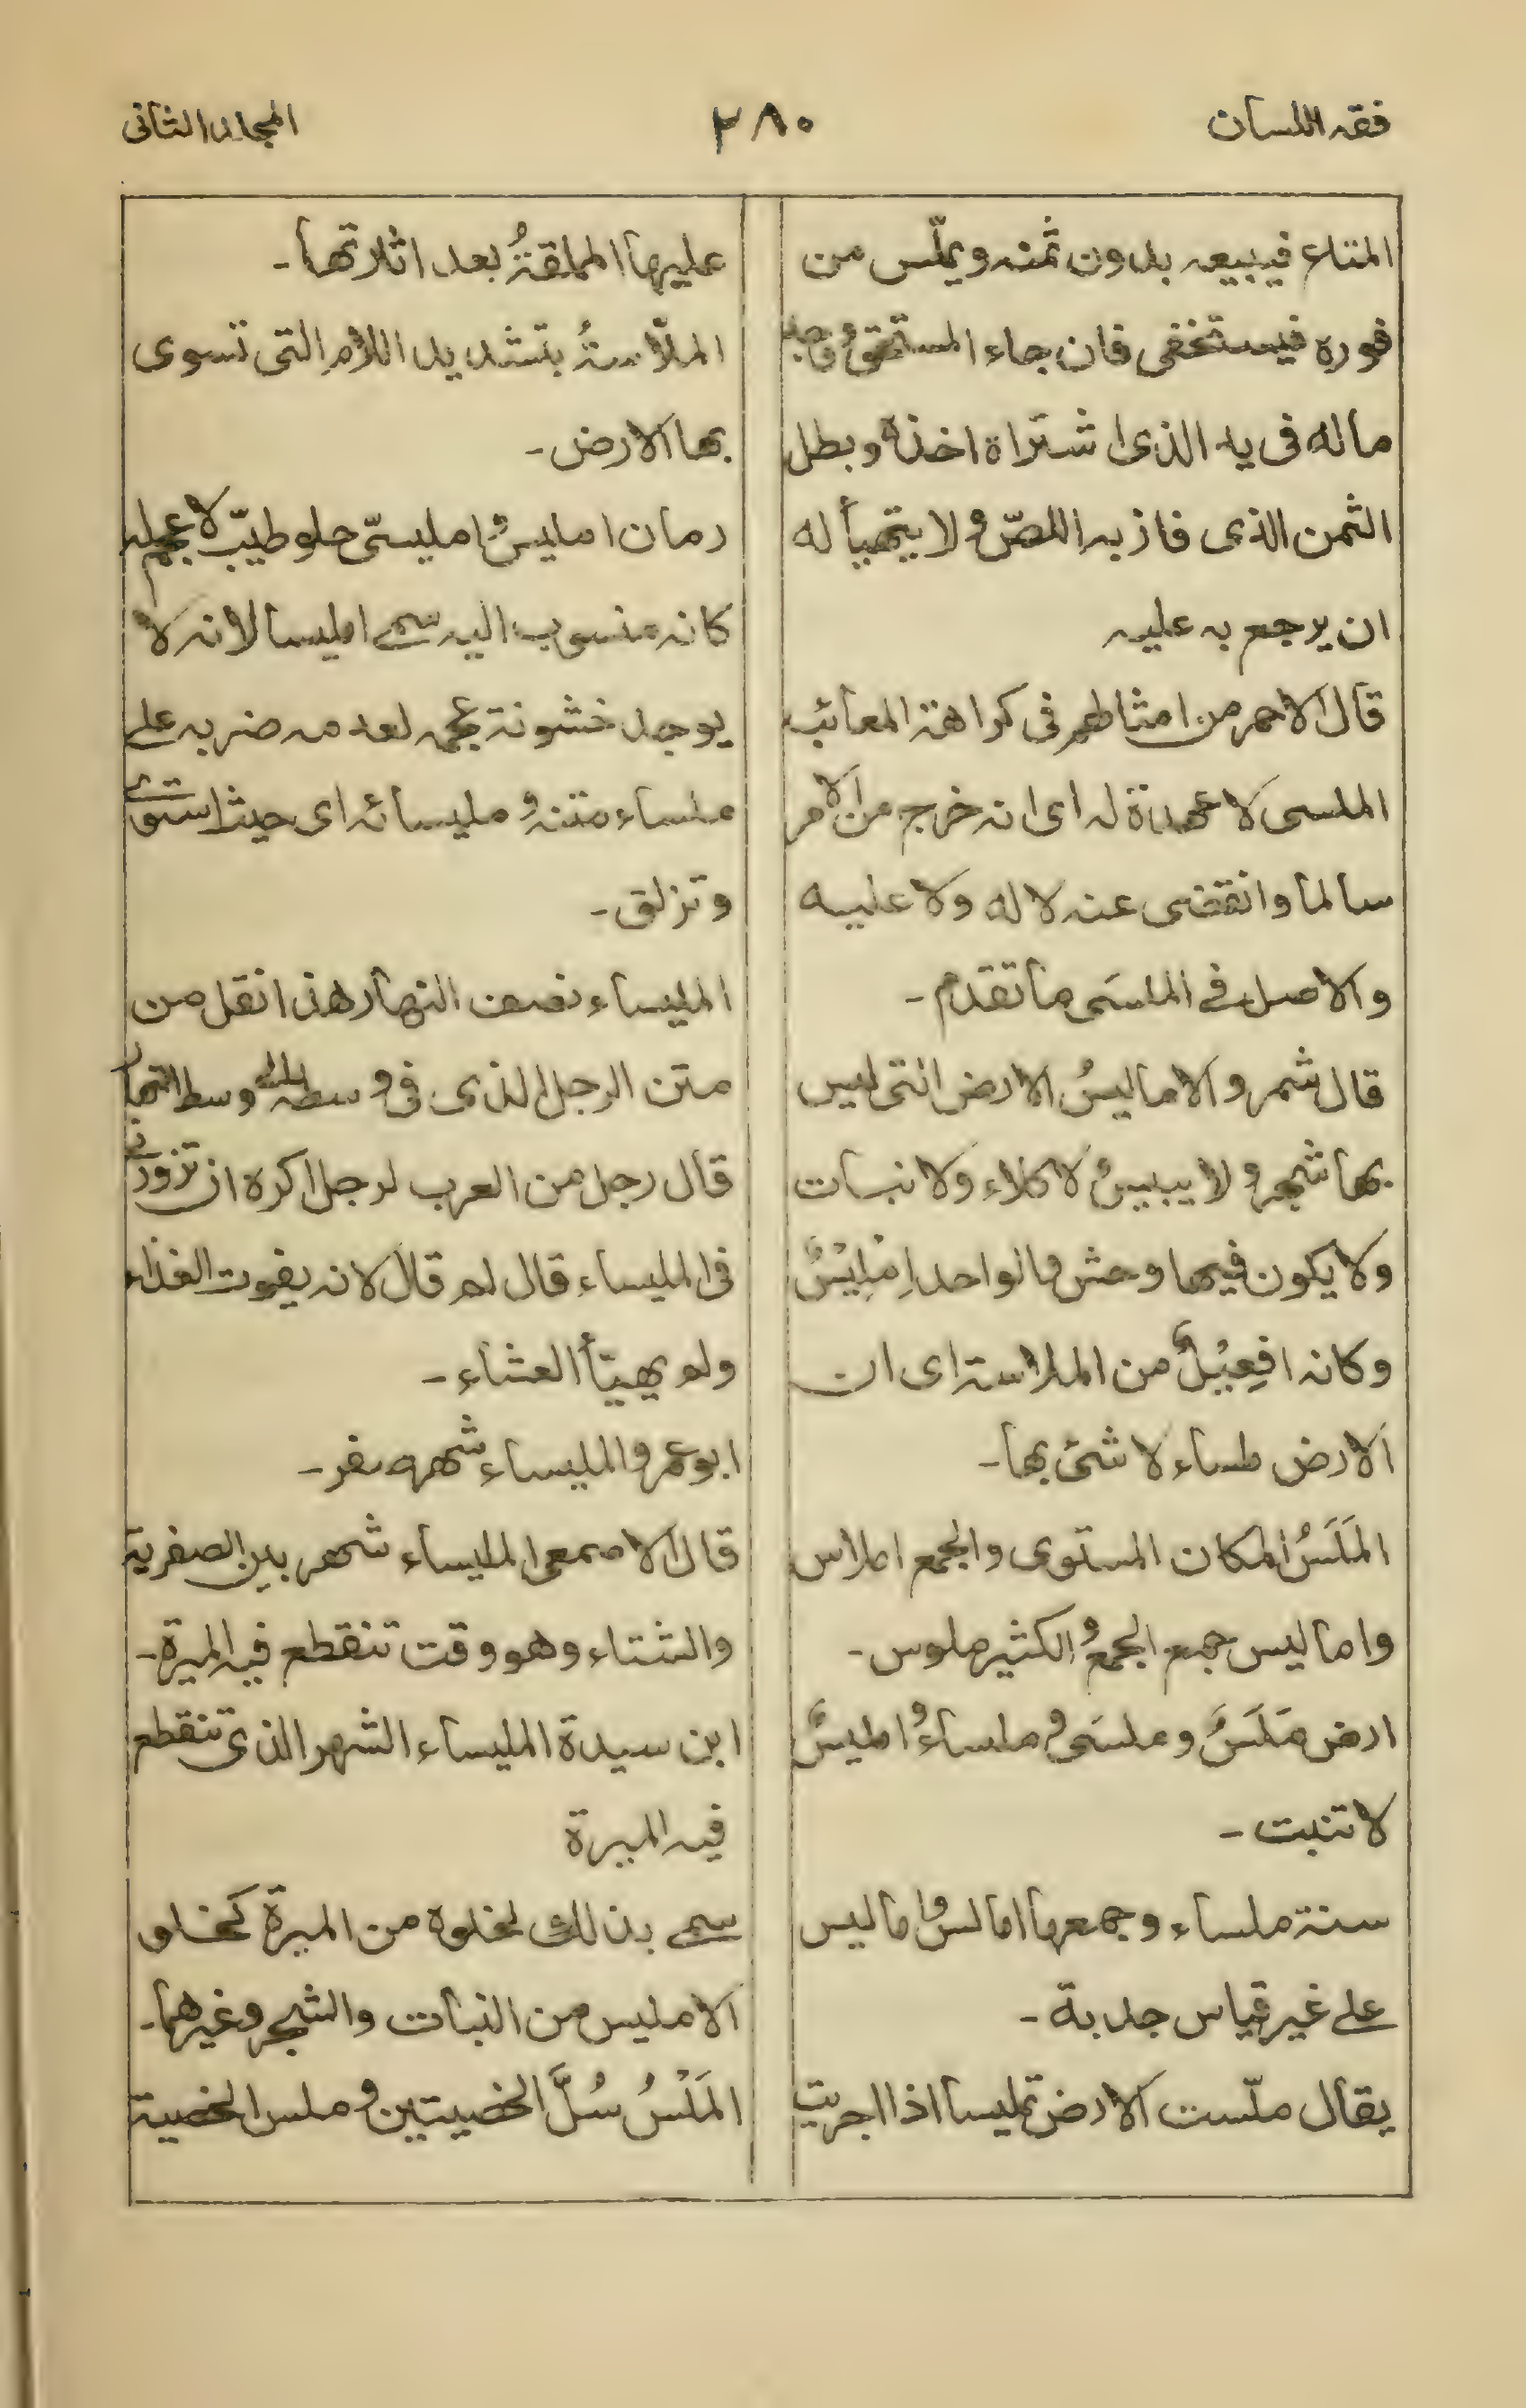 فقه اللسان
٢٨٠
المجلد الثانی
المتاع فیبیعه بدون ثمنه ویملّس من
فوره فیستخفی فان جاء المستحقُّ وجد
ماله فی ید الذی اشتراه اخذه وبطل
الثمن الذی فاز به اللصّ ولا یتهیأ له
ان یرجع به علیه
قال الاحمر من امثالهم فی کراهة المعائب
الملسی لا عهدة له ای انه خرج من الامر
سالما وانقضی عنه لا له ولا علیه
والاصل فی الملسَی ما تقدم ـ
قال شمر والامالیسُ الارض التی لیس
بها شجر ولا یبیسٌ لا کلاء ولا نبات
ولا یکون فیها وحش والواحد اِمْلِیْسٌ
وکانه افِعِیْلٌ من الملاسة ای ان
الارض ملساء لا شئ بها ـ
المَلَسُ المکان المستوی والجمع املاس
وامالیس جمع الجمع والکثیر ملوس ـ
ارض مَلَسٌ وملسَی وملساءُ واملیسٌ
لا تنبت ـ
سنة ملساء وجمعها امالس وامالیس
علی غیر قیاس جدبة ـ
یقال ملّست الارض تملیسا اذا اجریت
علیها المملقةُ بعد اثارتها ـ
الملّاسةُ بتشدید اللام التی تسوی
بها الارض ـ
رمان املیسٌ واملیسیّ حلو طیّب لا عجم له
کانه منسوب الیه سمی املیسا لانه لا
یوجد خشونة عجمه لعدمه ضربه علی
ملساء متنه وملیسائه ای حیث استوی
وتزلق ـ
الملیساء نصف النهار هذا نقل من
متن الرجل الذی فی وسطه الی وسط النهار
قال رجل من العرب لرجل اکره ان تزورنی
فی الملیساء قال لم قال لانه یفوت الغذاء
ولم یهیّأ العشاء ـ
ابو عمرو الملیساء شهر صفر ـ
قال الاصمعی الملیساء شهر بین الصفریة
والشتاء وهو وقت تنقطع فیه المیرة ـ
ابن سیدة الملیساء الشهر الذی تنقطع
فیه المیرة
سمی بذلک لخلوه من المیرة کخلو
الاملیس من النبات والشجر وغیرهما ـ
المَلْسُ سُلَّ الخصیتین وملس الخصیة